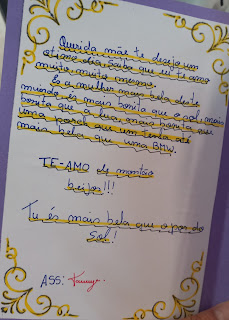 Querida mãe te desejo um
otimo dia, saiba que eu te amo
muito, muito mesmo.
És a mulher mais bela deste
mundo és mais bonita que o sol, mais
bonita que a lua, mais bonita que
uma que um até
mais bela que uma BMW.
TE-AMO de montão
beijos!!!
Tu és mais bela que o por do
Sol!
ASS: